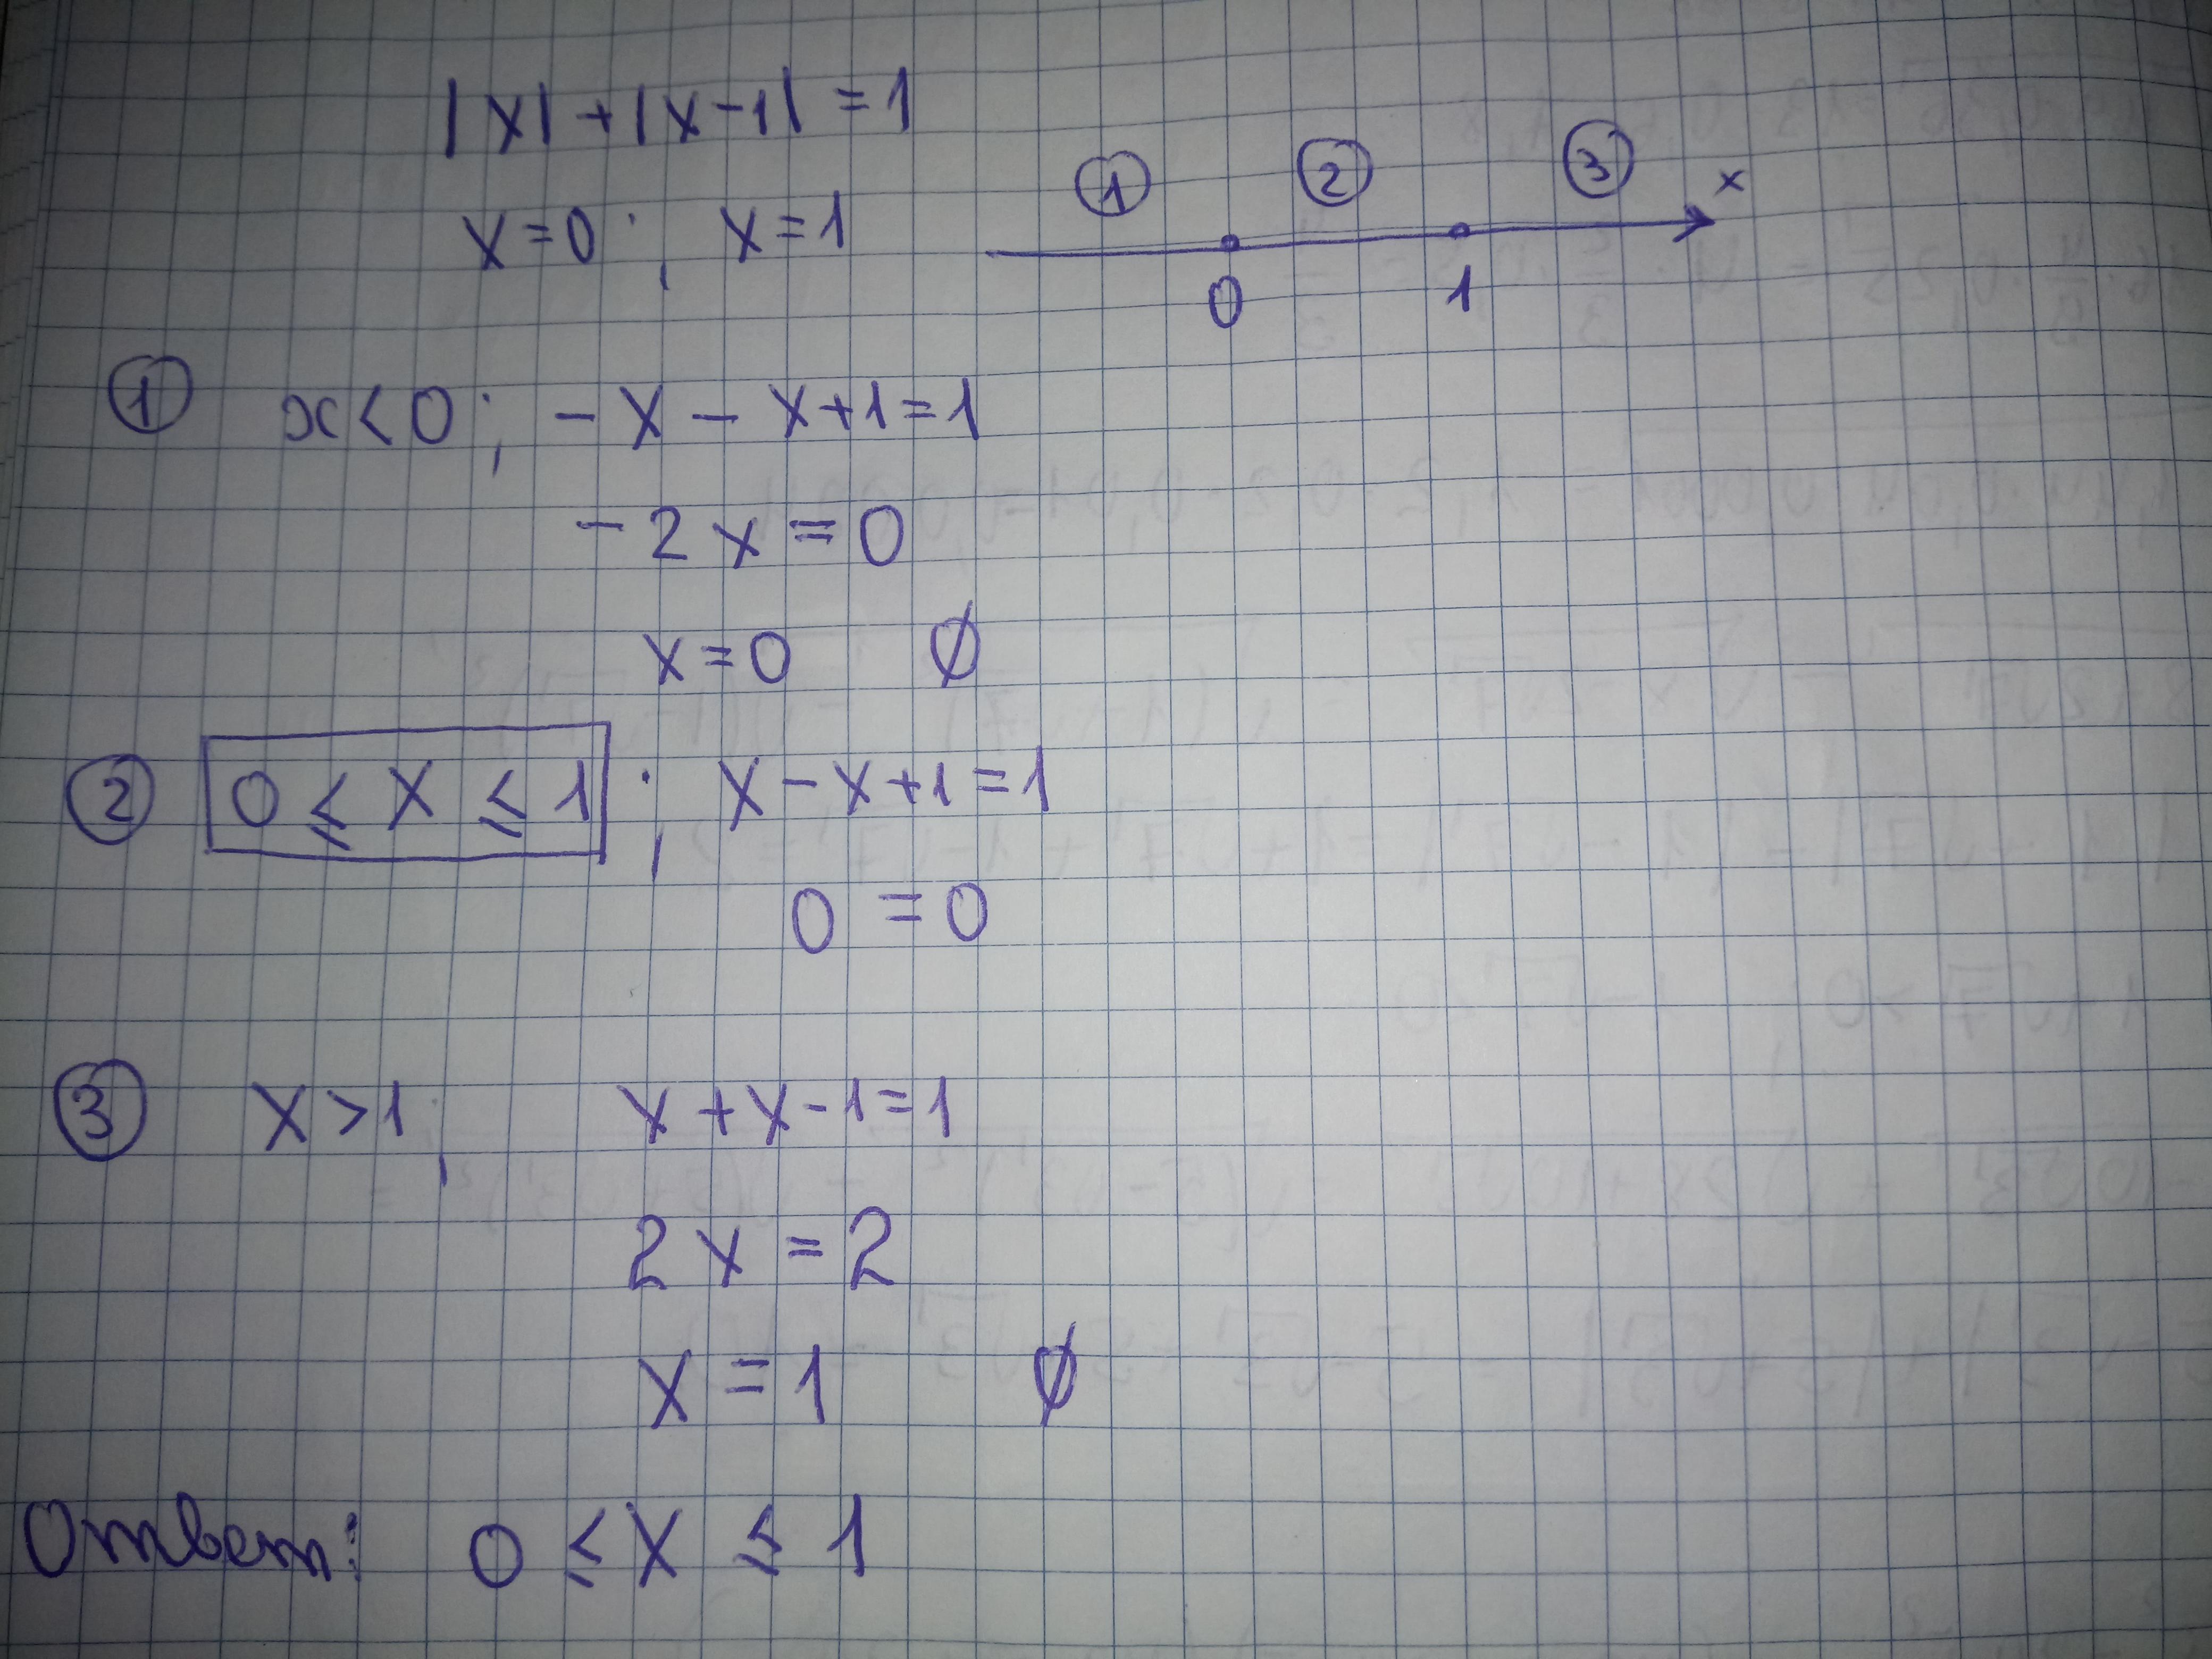 |x|+|x-1|=1
x=0; x=1
① ② ③ x
0 1
① x<0; -x-x+1=1
-2x=0
x=0 ∅
② 0≤x≤1; x-x+1=1
0=0
③ x>1; x+x-1=1
2x=2
x=1 ∅
Ответ: 0≤x≤1